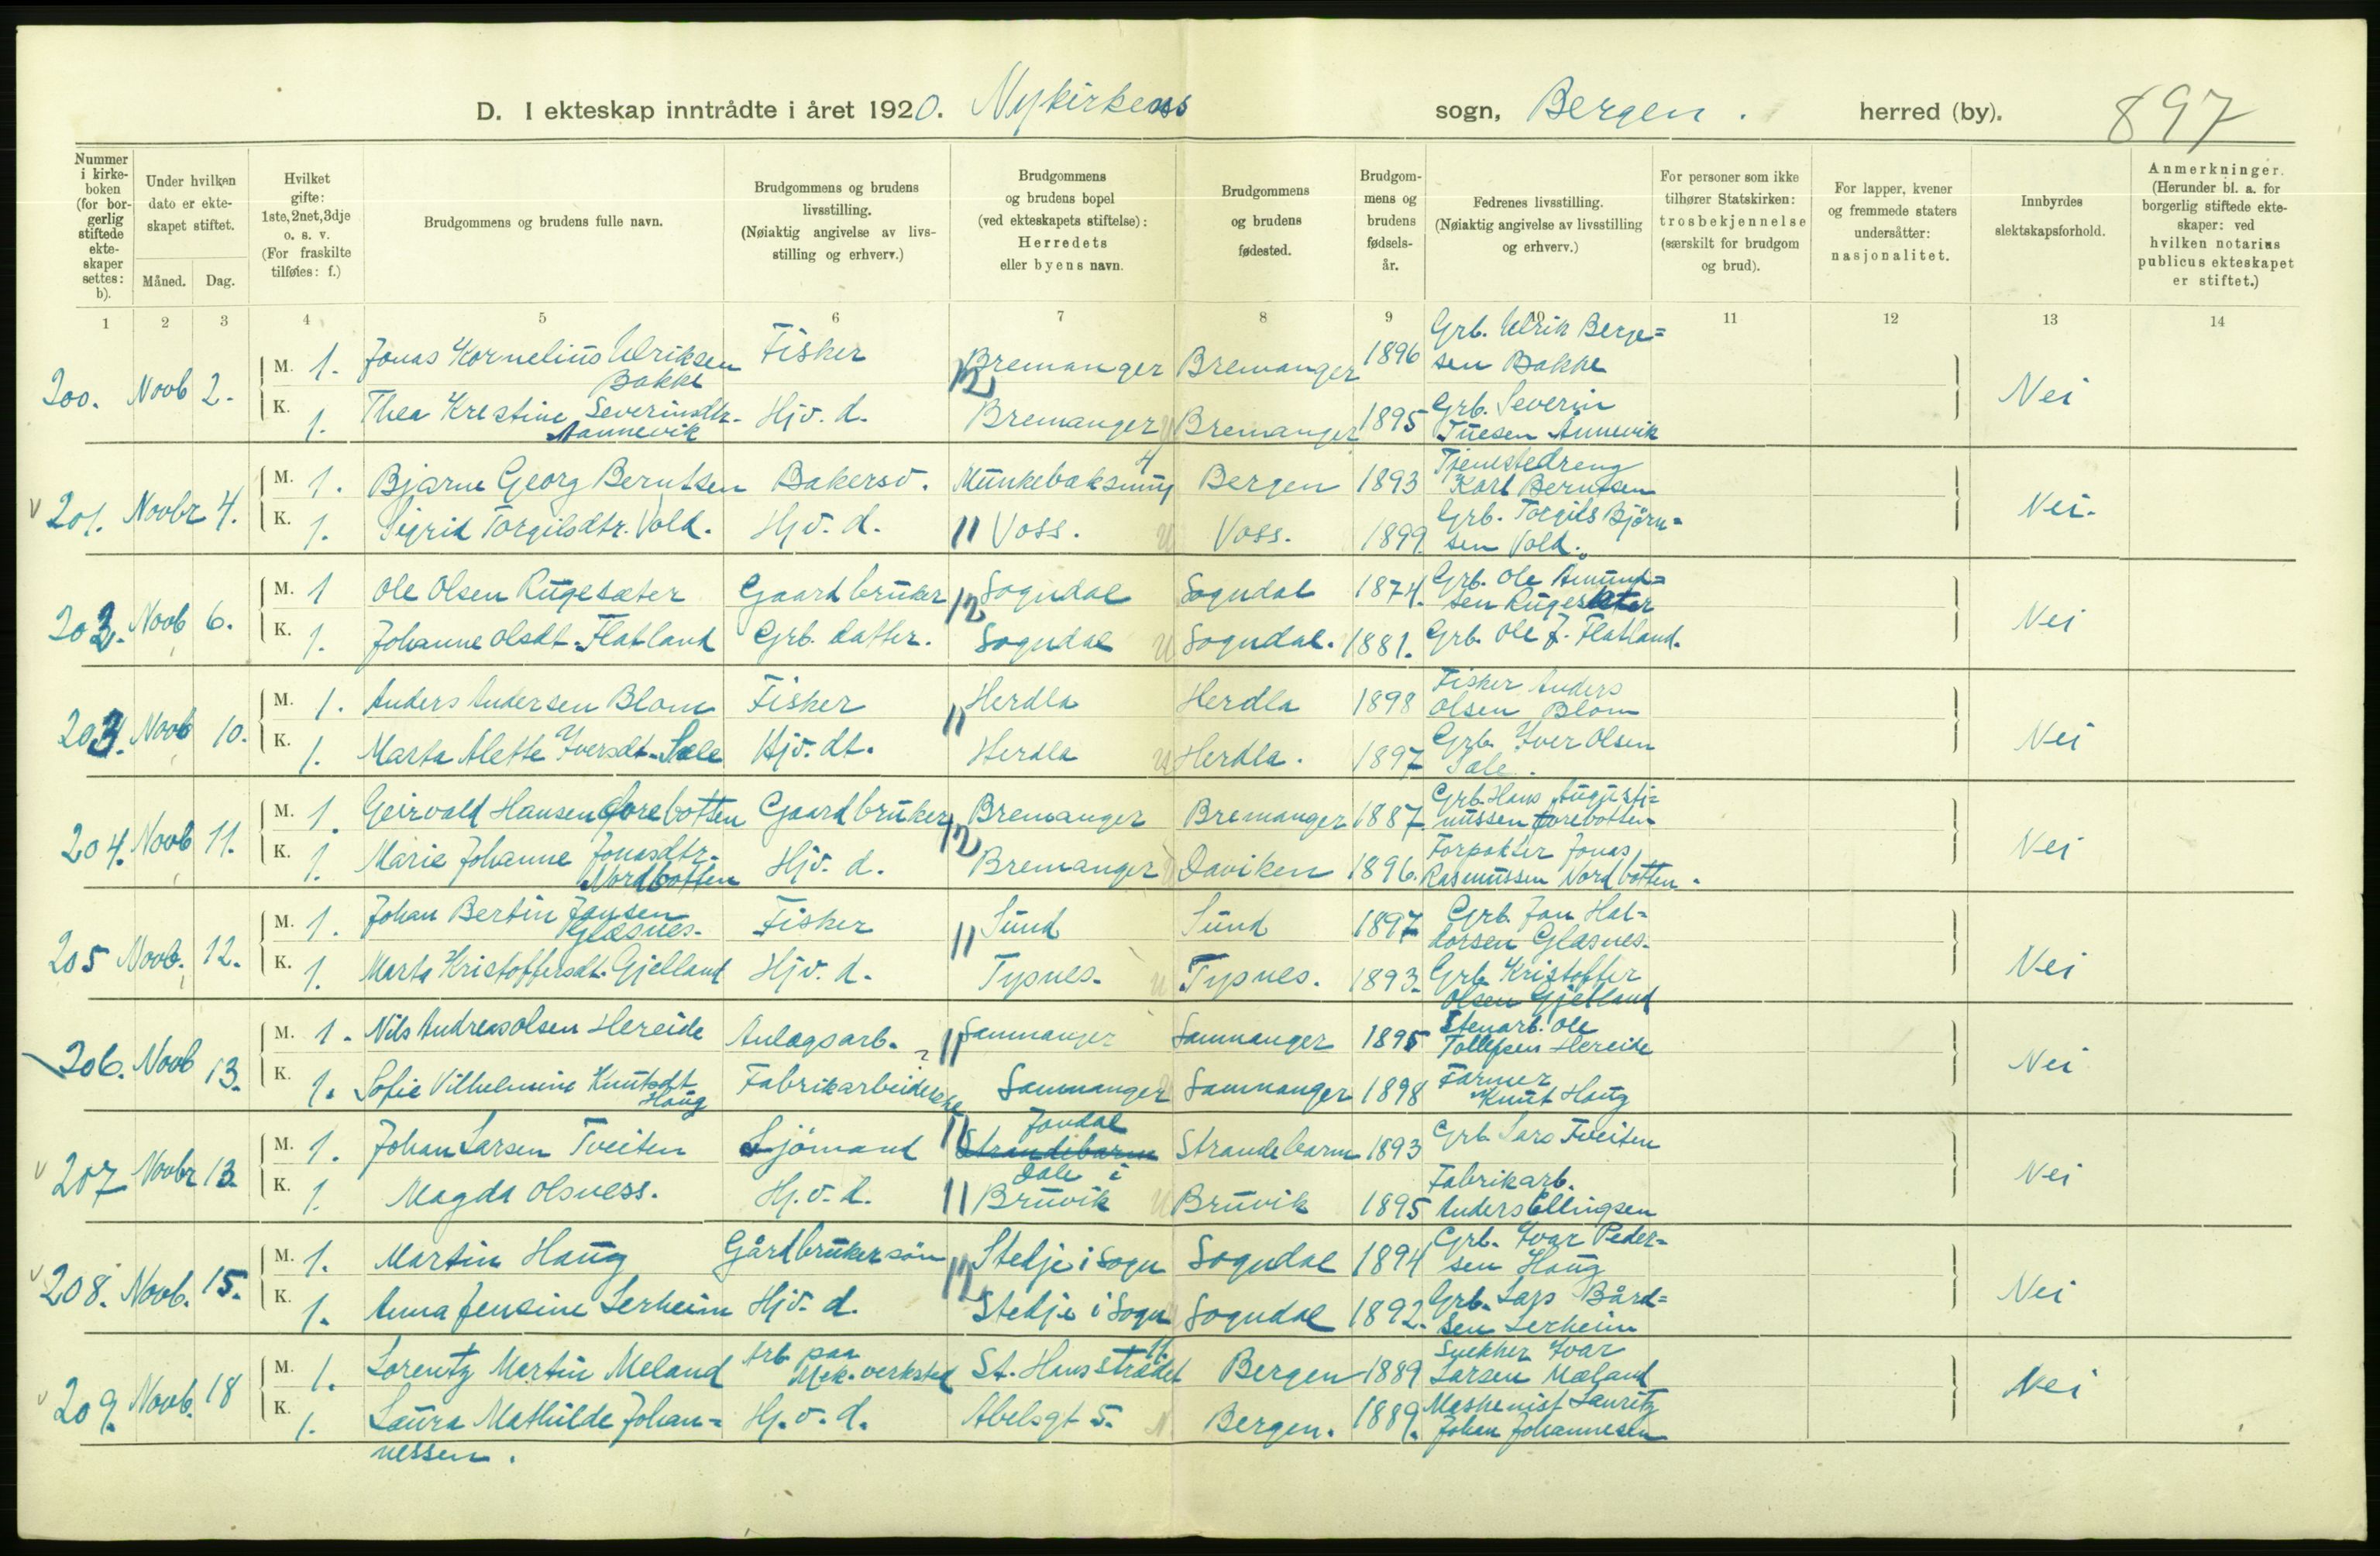 D. I ekteskap inntrådte i året 1920. Nykirkens sogn, Bergen. herred (by). 897
Nummer i kirkeboken (for borgerlig stiftede ekteskaper settes: b).
Under hvilken dato er ekteskapet stiftet.
Måned. Dag.
Hvilket gifte: 1ste, 2net, 3dje o. s. v. (For fraskilte tilføies: f.)
Brudgommens og brudens fulle navn.
Brudgommens og brudens livsstilling. (Nøiaktig angivelse av livsstilling og erhverv.)
Brudgommens og brudens bopel (ved ekteskapets stiftelse): Herredets eller byens navn.
Brudgommens og brudens fødested.
Brudgommens og brudens fødselsår.
Fedrenes livsstilling. (Nøiaktig angivelse av livsstilling og erhverv.)
For personer som ikke tilhører Statskirken: trosbekjennelse (særskilt for brudgom og brud).
For lapper, kvener og fremmede staters undersåtter: nasjonalitet.
Innbyrdes slektskapsforhold.
Anmerkninger. (Herunder bl. a. for borgerlig stiftede ekteskaper: ved hvilken notarius publicus ekteskapet er stiftet.)
1 2 3 4 5 6 7 8 9 10 11 12 13 14
200. Novb 2. M. 1. Jonas Kornelius Ulriksen Bakke Fisker 12 Bremanger Bremanger 1896 Grb. Ulrik Berge=
sen Bakke Nei
K. 1. Thea Kristine Severinsdtr. Aannevik Hjv. d. Bremanger Bremanger 1895 Grb. Severin
Tuesen Annevik
201. Novbr 4. M. 1. Bjarne Georg Berntsen Bakersv. Munkebaksmug 4 Bergen 1893 Tjenestedreng
Karl Berntsen Nei.
K. 1. Sigrid Torgilsdtr. Vold. Hjv. d. 11 Voss. Voss. 1899. Grb. Torgils Bjørn=
sen Vold.
202. Novb 6. M. 1 Ole Olsen Rugesæter Gaardbruker 12 Sogndal Sogndal 1874. Grb. Ole Amund=
sen Rugesæter Nei
K. 1. Johanne Olsdt. Flatland Grb. datter. Sogndal Sogndal. 1881. Grb. Ole J. Flatland.
203. Novb 10. M. 1. Anders Andersen Blom Fisker 11 Herdla Herdla 1898 Fisker Anders
Olsen Blom Nei
K. 1. Marta Alette Iversdt. Sæle Hjv. dt. Herdla Herdla. 1897 Grb. Iver Olsen
Sæle.
204. Novb 11. M. 1. Geirvald Hansen Førebotten Gaardbruker 12 Bremanger Bremanger 1887 Grb. Hans Augusti=
nussen Førebotten Nei
K. 1. Marie Johanne Jonasdtr. Nordbotten Hjv. d. Bremanger Daviken 1896. Forpakter Jonas
Rasmussen Nordbotten.
205 Novb. 12. M. 1. Johan Bertin Jansen Glæsnes. Fisker 11 Sund Sund 1897 Grb. Jan Hal=
dorsen Glæsnes. Nei
K. 1. Marta Kristoffersdt. Gjelland Hjv. d. Tysnes. Tysnes. 1893. Grb. Kristoffer
Olsen Gjelland
206. Novb 13. M. 1. Nils Andreas Olsen Hereide Anlægsarb. ? 11 Samnanger Samnanger 1895 Stenarb. Ole
Tollefsen Hereide Nei
K. 1. Sofie Vilhelmine Knutsdt Haug Fabrikarbeiderske Samnanger Samnanger 1898 Farmer
Knut Haug
207 Novbr 13. M. 1. Johan Larsen Tveiten Sjömand 11 Jondal Strandebarm Strandebarm 1893 Grb. Lars Tveiten Nei
K. 1. Magda Olsness. Hj. v. d. 11 Dale i Bruvik Bruvik 1895 Fabrikarb.
Anders Ellingsen
208. Novb. 15. M. 1. Martin Haug Gårdbrukersön 12 Stedje i Sogn Sogndal 1894 Grb. Ivar Peder=
sen Haug Nei
K. 1. Anna Jensine Lerheim Hjv. d. Stedje i Sogn Sogndal 1892. Grb. Lars Bård=
sen Lerheim
209. Novb. 18 M. 1. Lorentz Martin Meland Arb. paa Mek. verksted St. Hansstrædet 11. Bergen 1889 Snekker Ivar
Larsen Mæland Nei
K. 1. Laura Mathilde Johan= Hj. v. d. Abelsgt 5. Bergen. 1889. Maskenist Lauritz
nessen. Johan Johannesen